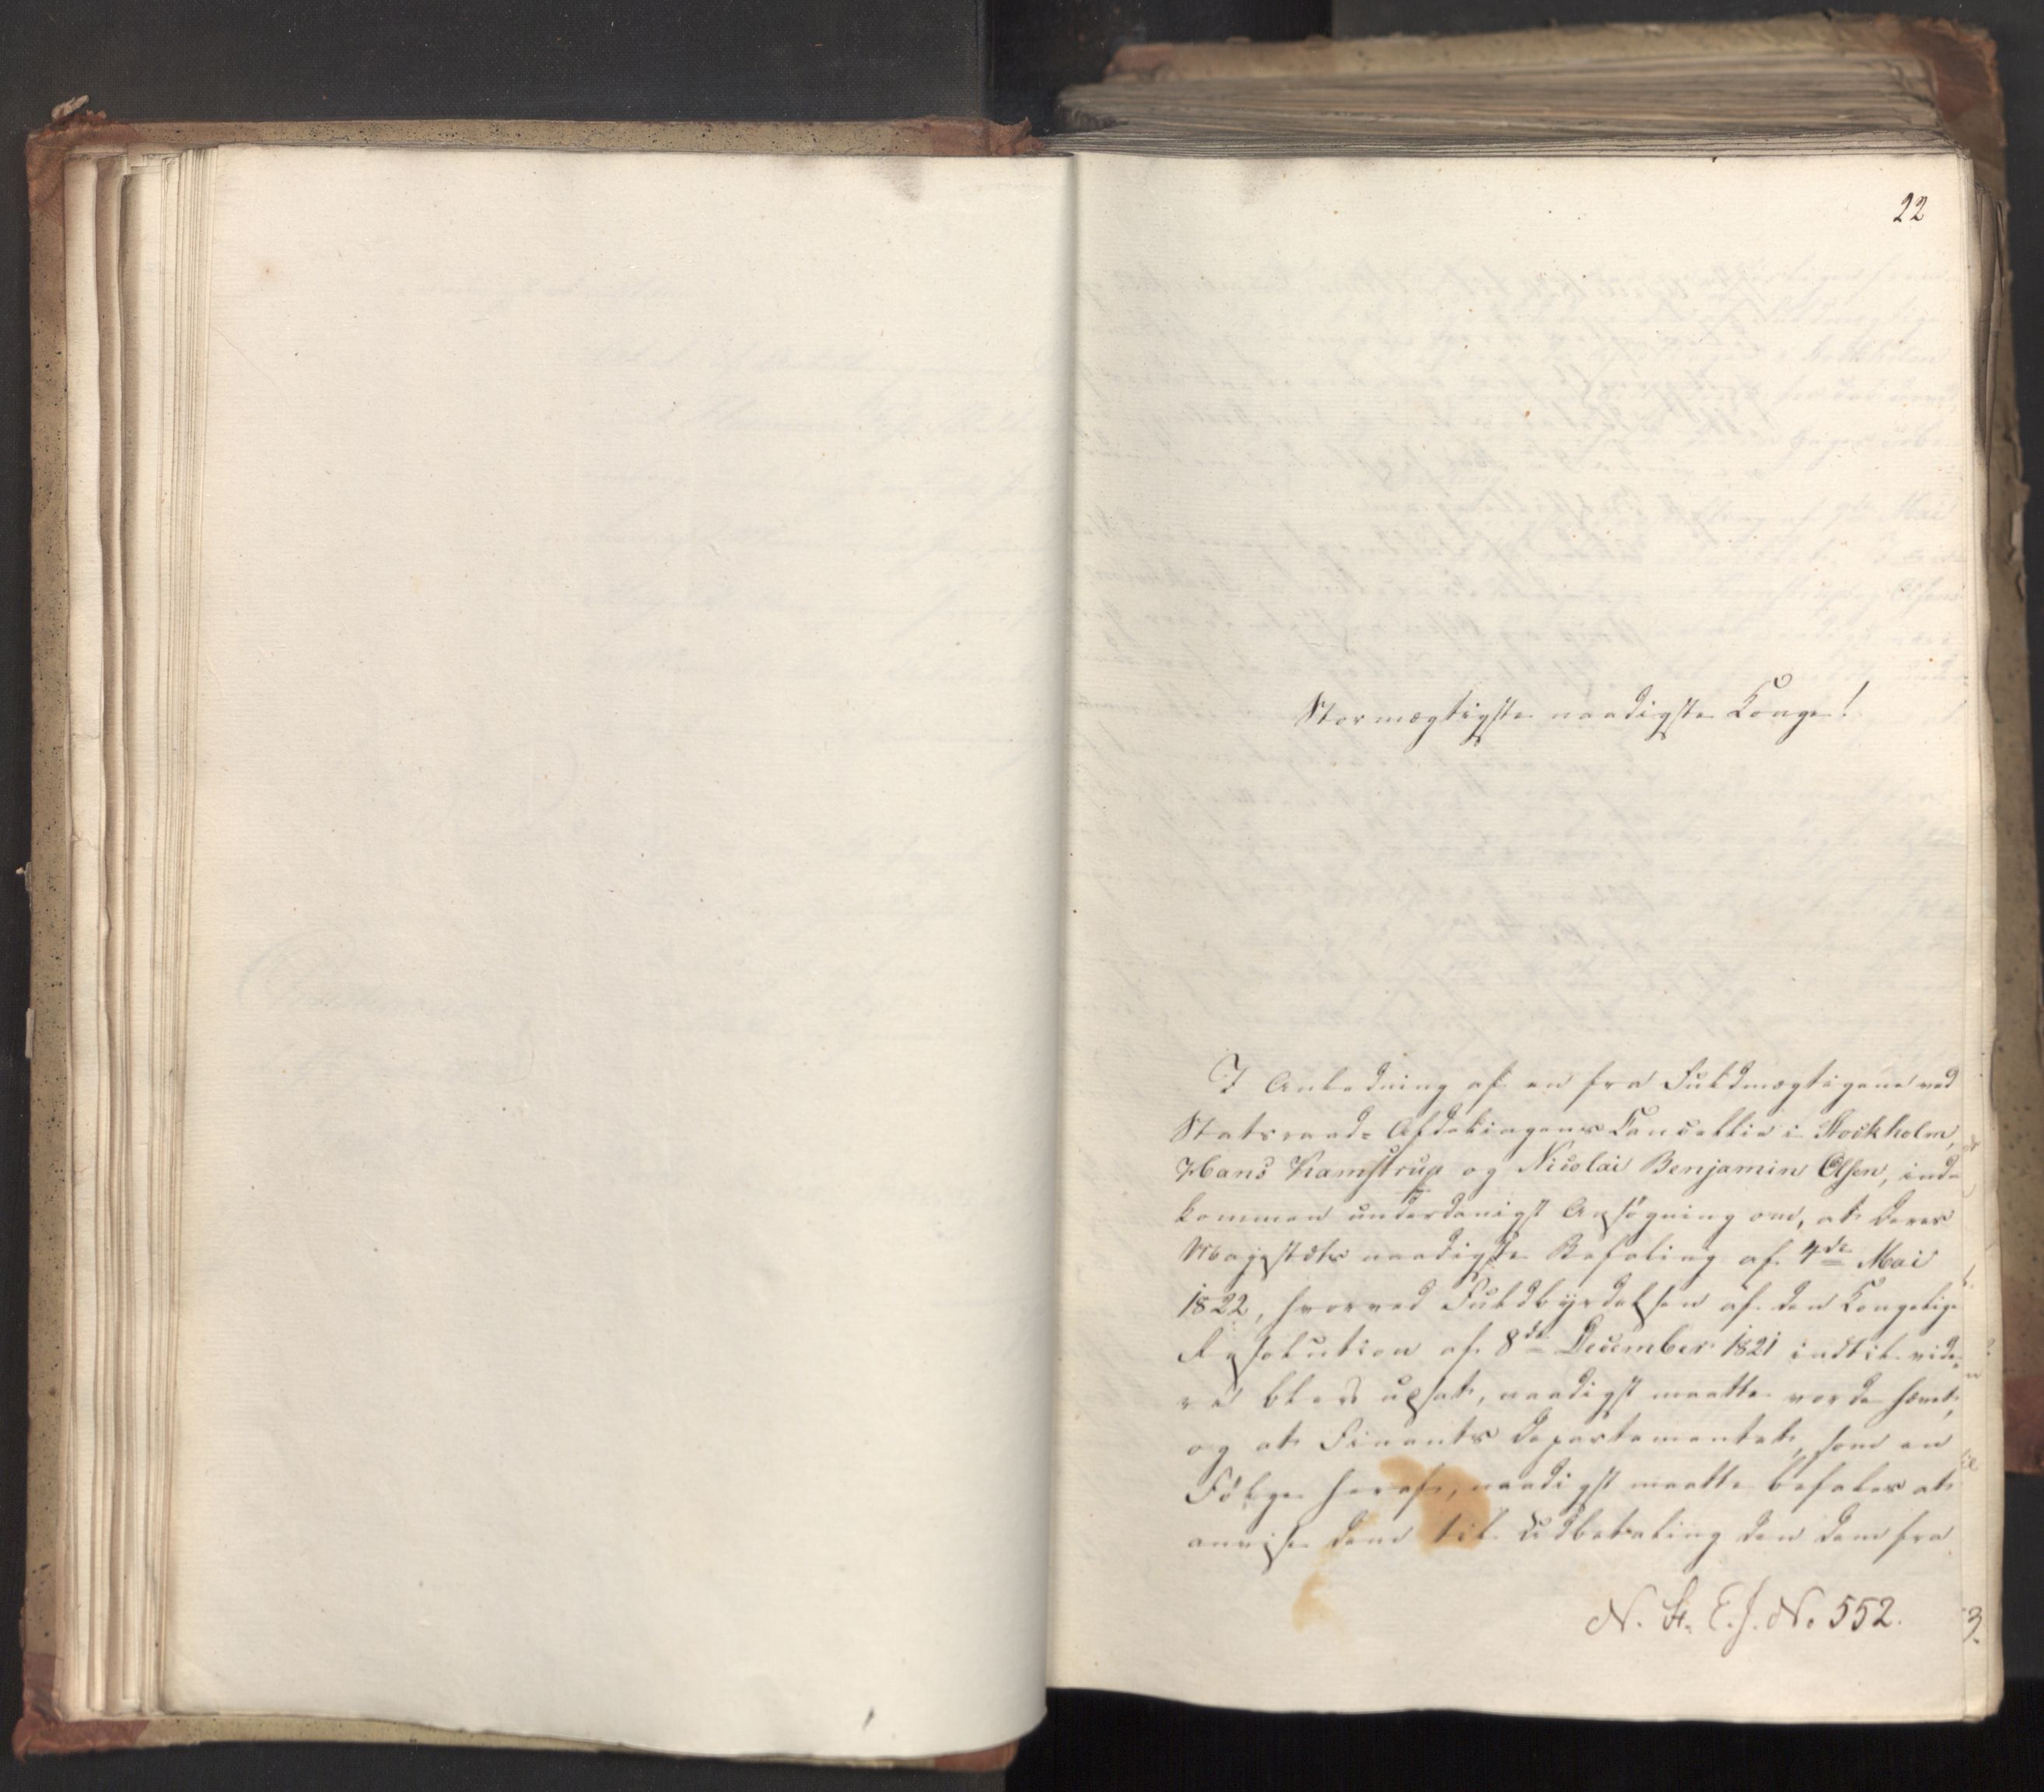 22
Stormægtigste naadigste Konge!
I Anledning af en fra Fuldmægtigene ved
Statsraad-Afdelingens Cancellie i Stockholm,
Hans Kamstrup og Nicolai Benjamin Olsen, ind-
kommen underdanigst Ansøgning om, at Deres
Majestæts naadigste Befaling af 4de Mai
1822, hvorved Fuldbyrdelsen af den Kongelige
Resolution af 8de December 1821 indtil vide-
re blev udsat, naadigst maatte vorde hævet,
og at Finants Departementet, som en
Følge heraf, naadigst maatte befales at
anvise dem til Udbetaling den dem fra
N. St. E. J. No 552.